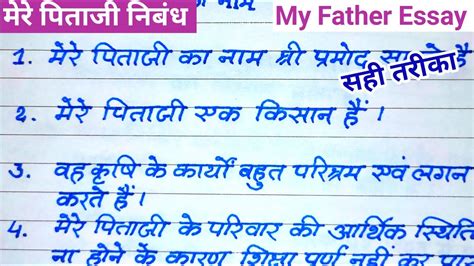 मेरे पिताजी निबंध
My Father Essay
नाम
1. मेरे पिताजी का नाम श्री प्रमोद है
सही तरीका
2. मेरे पिताजी एक किसान हैं ।
3. वह कृषि के कार्यों बहुत परिश्रम एवं लगन
करते हैं ।
4. मेरे पिताजी के परिवार की आर्थिक स्थिति
ना होने के कारण शिक्षा पूर्ण नहीं कर